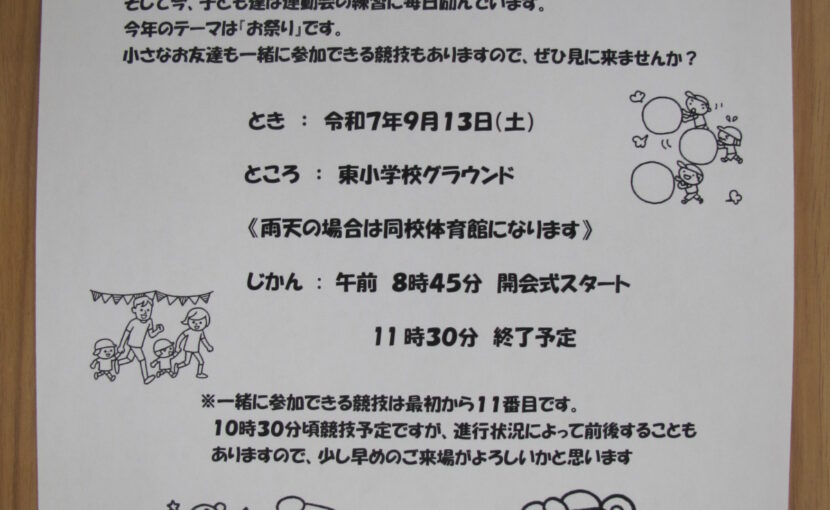 そして今、子ども達は運動会の練習に毎日励んでいます。
今年のテーマは「お祭り」です。
小さなお友達も一緒に参加できる競技もありますので、ぜひ見に来ませんか？
とき ： 令和7年9月13日(土)
ところ ： 東小学校グラウンド
《雨天の場合は同校体育館になります》
じかん ： 午前 8時45分 開会式スタート
11時30分 終了予定
※一緒に参加できる競技は最初から11番目です。
10時30分頃競技予定ですが、進行状況によって前後することも
ありますので、少し早めのご来場がよろしいかと思います